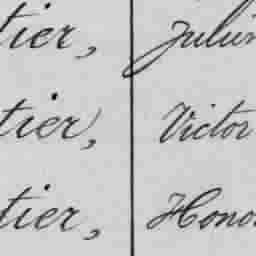 tier, Julien
tier, Victor
tier, Honor